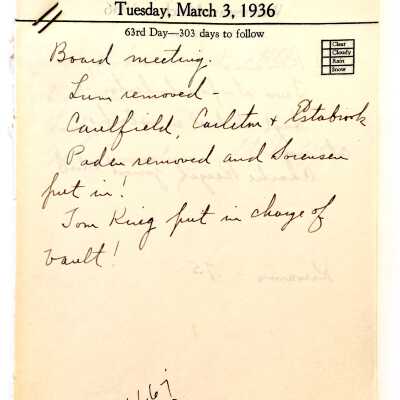 Tuesday, March 3, 1936
63rd Day—303 days to follow
Clear
Cloudy
Rain
Snow
Board meeting.
Lum removed -
Caulfield, Carleton & Estabrook
Paden removed and Sorensen
put in!
Tom Krieg put in charge of
vault!